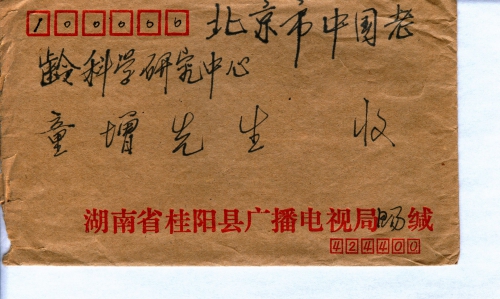 100000 北京市中国老
龄科学研究中心
童增先生 收
湖南省桂阳县广播电视局 缄
424400